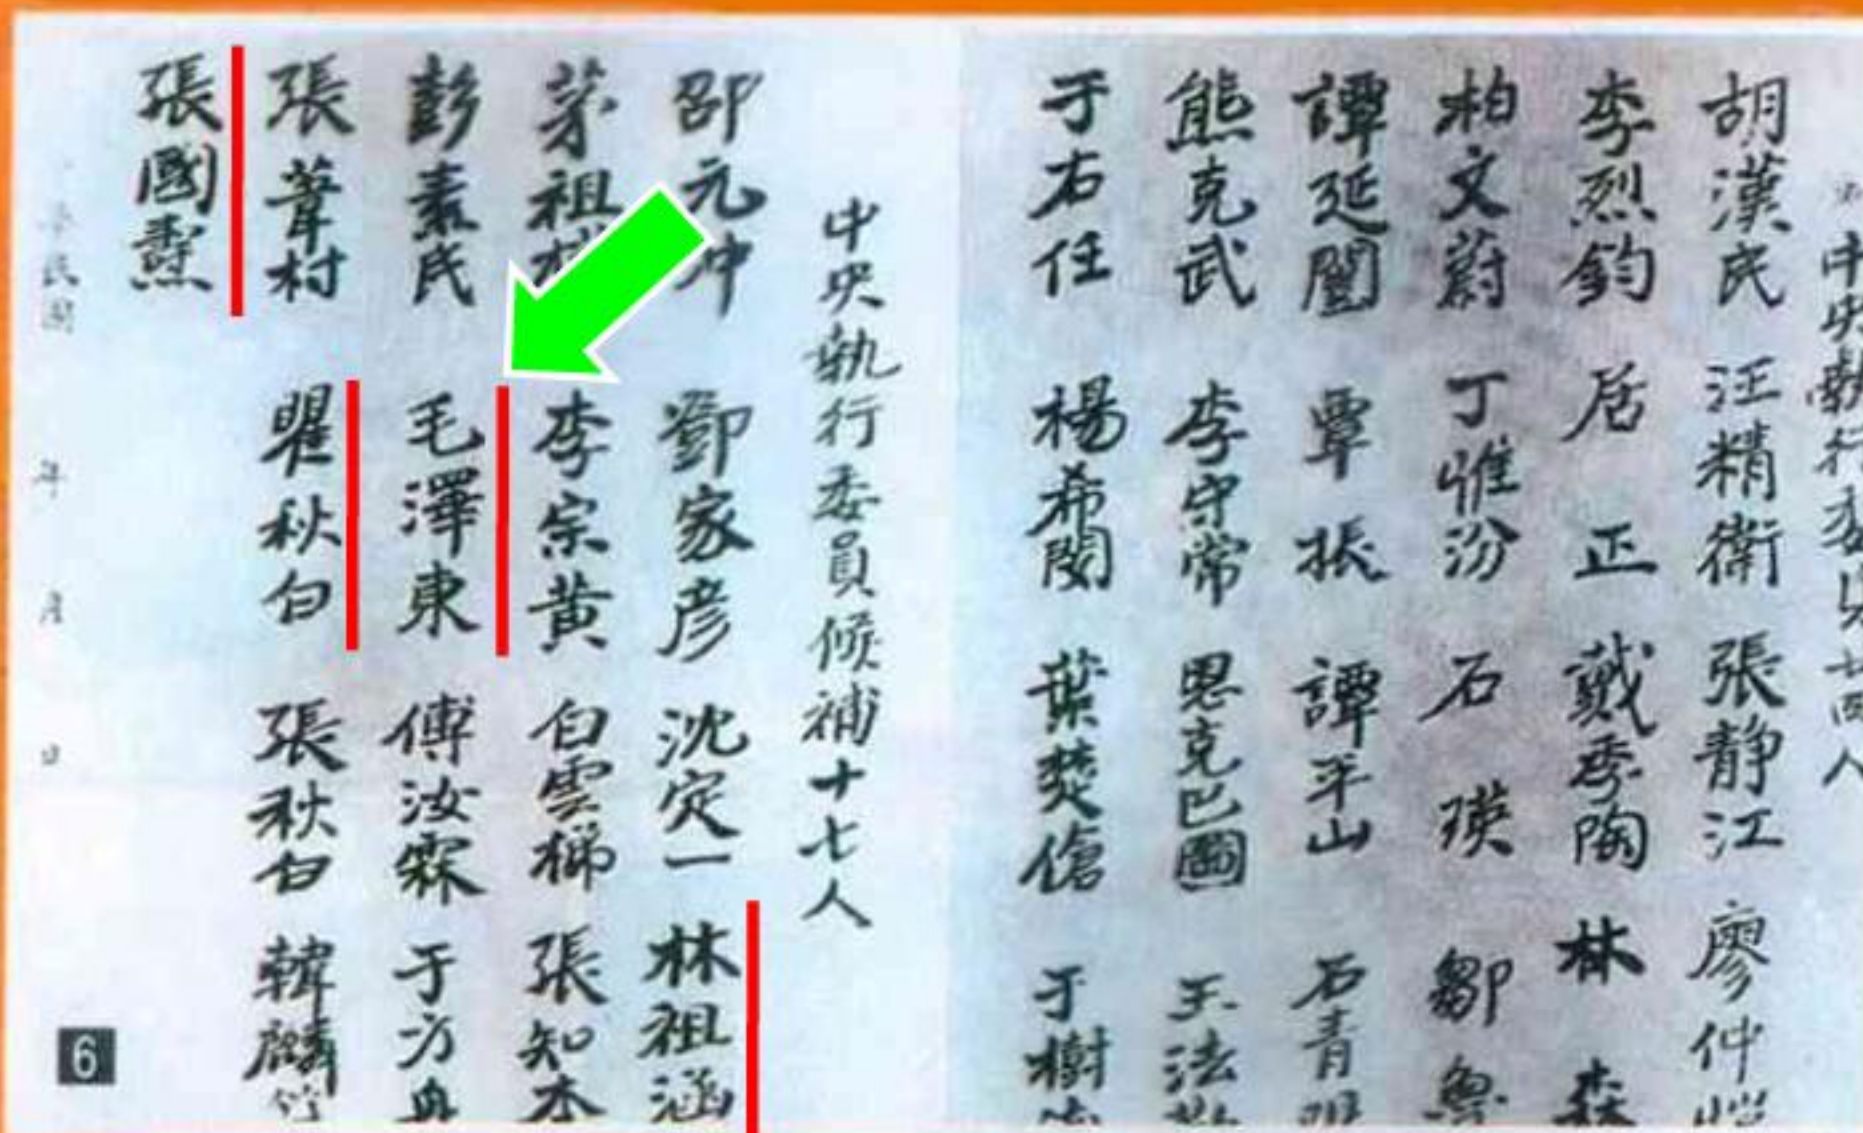 中央執行委員廿四人
胡漢民 汪精衛 張靜江 廖仲愷
李烈鈞 居正 戴季陶 林森
柏文蔚 丁惟汾 石瑛 鄒魯
譚延闓 覃振 譚平山 石青
熊克武 李守常 恩克巴圖 王法
于右任 楊希閔 葉楚傖 于樹
中央執行委員候補十七人
邵元冲 鄧家彥 沈定一 林祖涵
茅祖 李宗黃 白雲梯 張知本
彭素民 毛澤東 傅汝霖 于方舟
張葦村 瞿秋白 張秋白 韓麟符
張國燾
民國 年 月 日
6